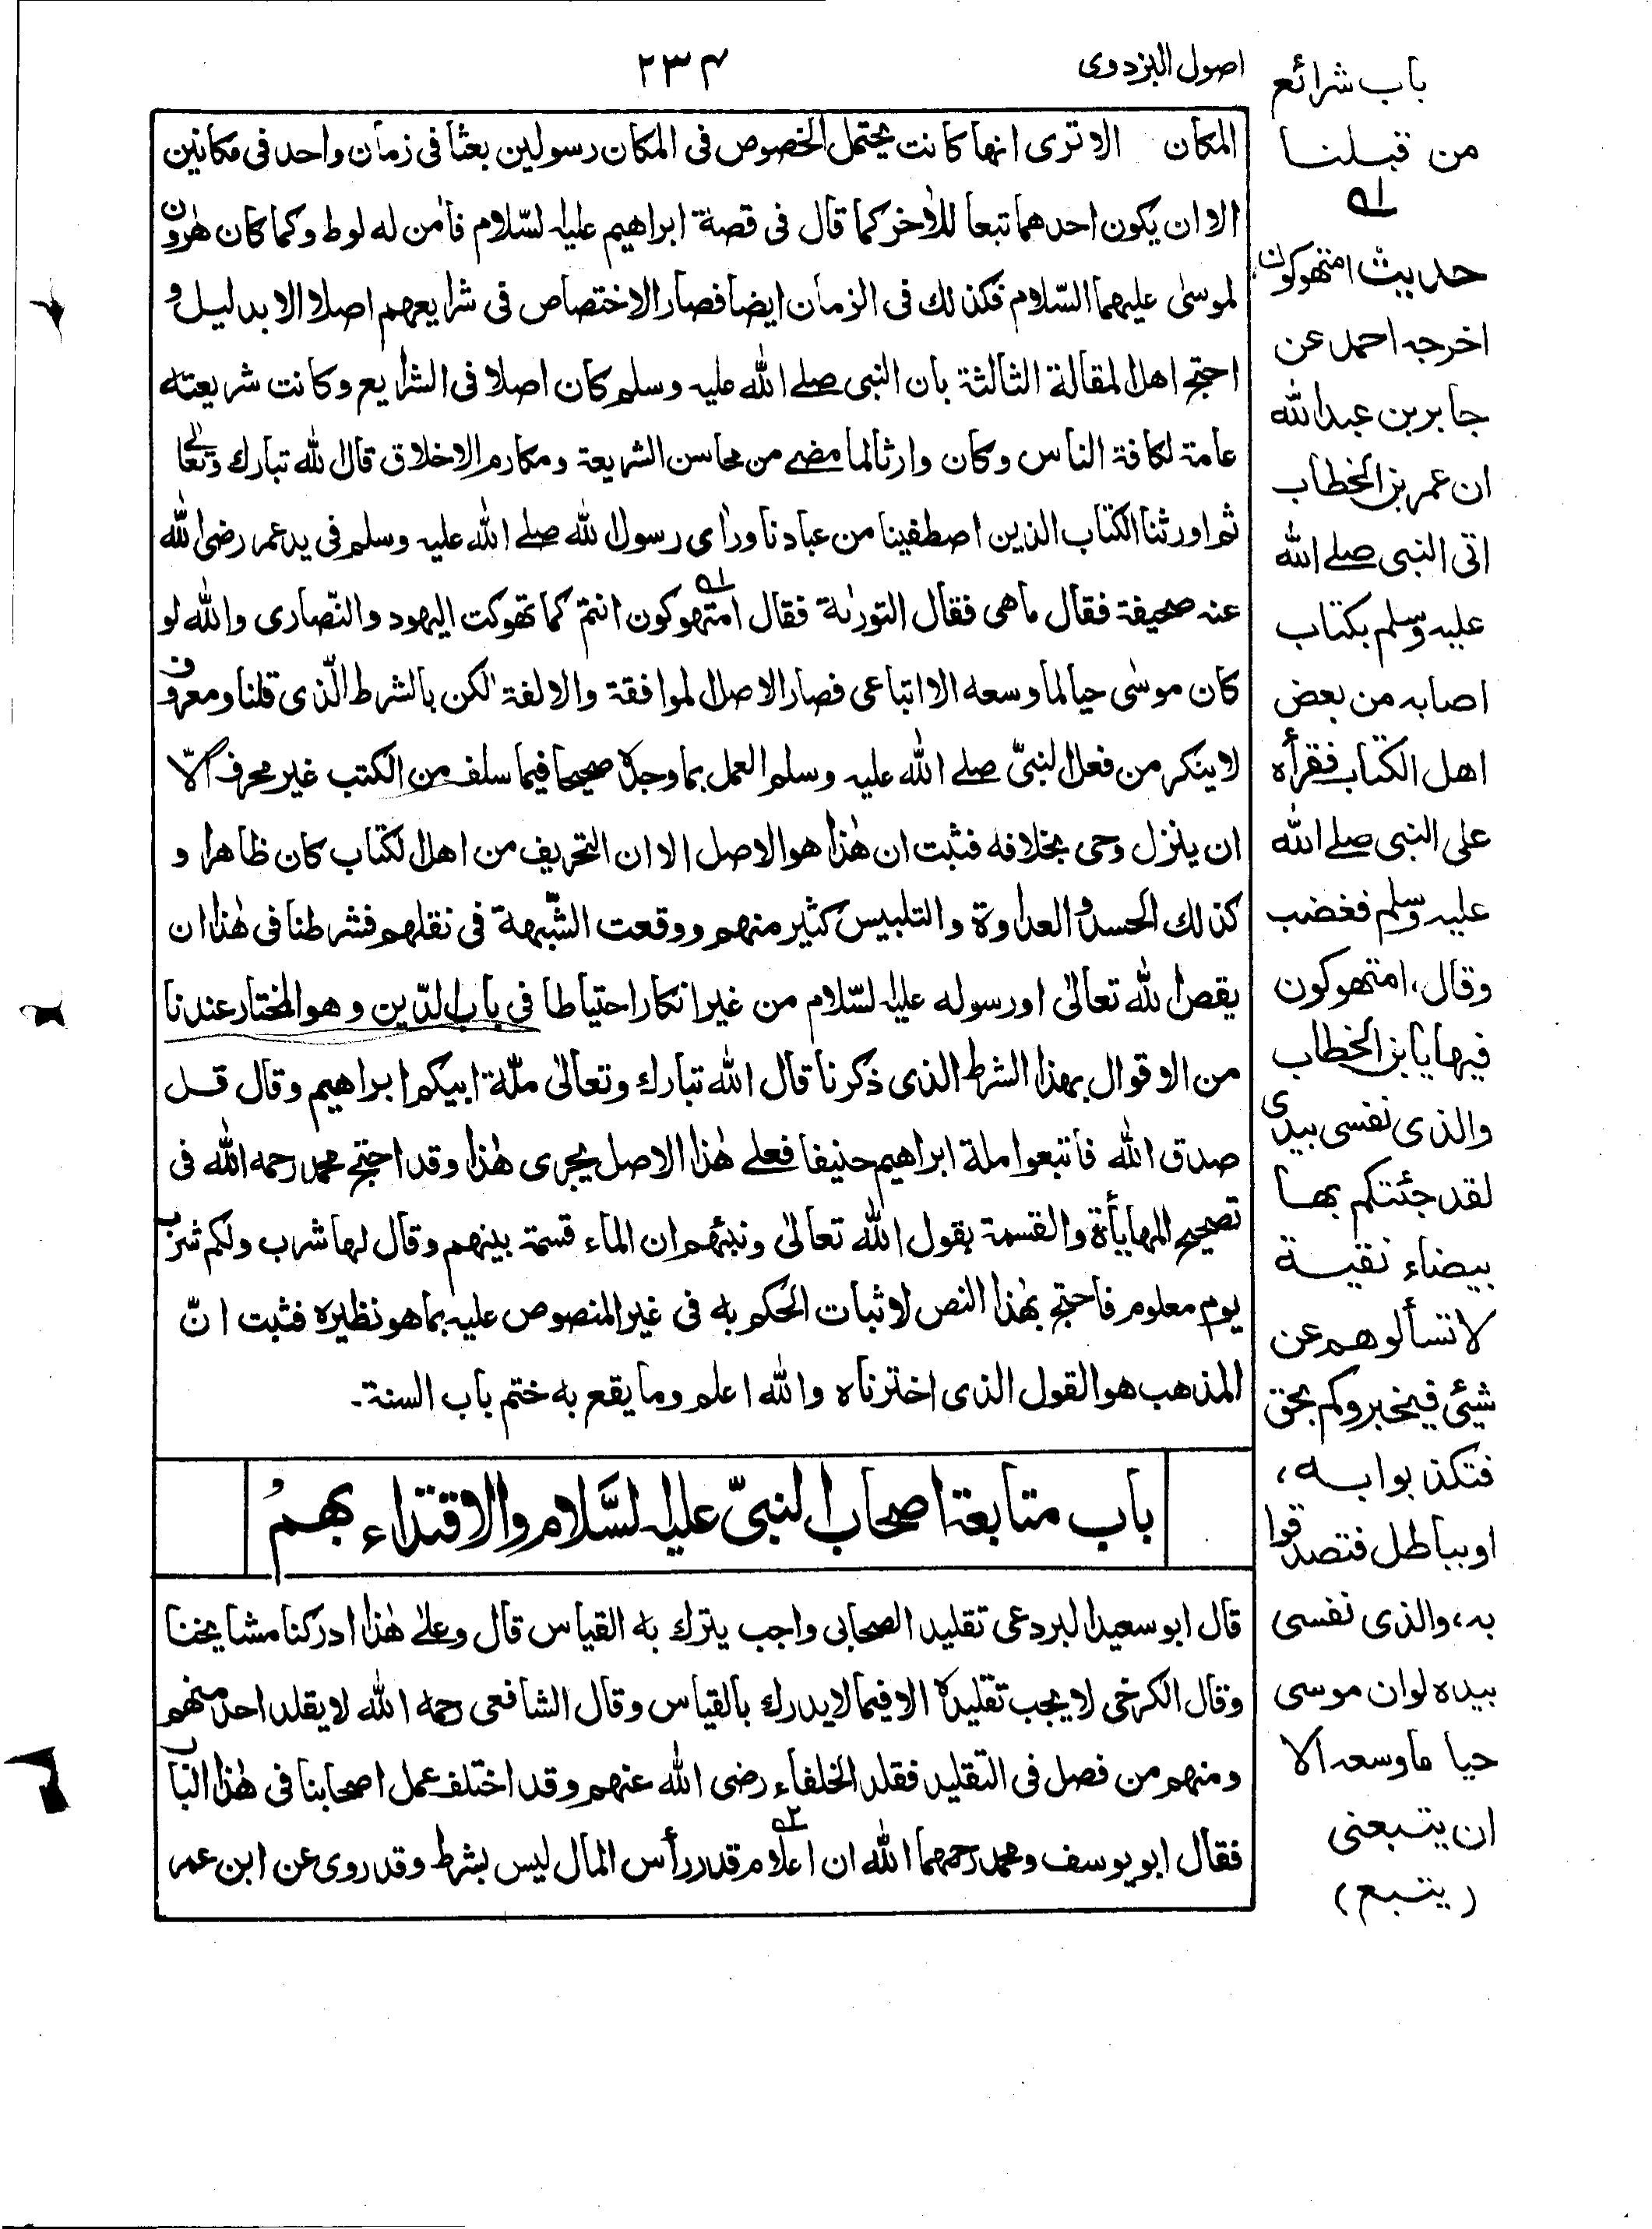 اصول البزدوى
٢٣٤
المكان الا ترى انها كانت يحتمل الخصوص فى المكان رسولين بعثا فى زمان واحد فى مكانين
الا ان يكون احدهما تبعا للأخر كما قال فى قصة ابراهيم عليه السّلام فأمن له لوط وكما كان هٰرون
لموسىٰ عليهما السّلام فكذلك فى الزمان ايضا فصار الاختصاص فى شرايعهم اصلا الا بدليل و
احتج اهل المقالة الثالثة بان النبى صلے الله عليه وسلم كان اصلا فى الشرايع وكانت شريعته
عامة لكافة الناس وكان وارثا لما مضے من محاسن الشريعة ومكارم الاخلاق قال الله تبارك وتعالىٰ
ثم اورثنا الكتاب الذين اصطفينا من عبادنا ورأى رسول الله صلے الله عليه وسلم فى يد عمر رضى الله
عنه صحيفة فقال ما هى فقال التورٰىة فقال امتهوكون ١ه انتم كما تهوكت اليهود والنّصارى والله لو
كان موسٰى حيا لما وسعه الا اتباعى فصار الاصل الموافقة والالفة لٰكن بالشرط الّذى قلنا ومعروف
لا ينكر من فعل النبىّ صلے الله عليه وسلم العمل بما وجده صحيحا فيما سلف من الكتب غير محرف الّا
ان ينزل وحى بخلافه فثبت ان هٰذا هو الاصل الا ان التحريف من اهل الكتاب كان ظاهرا و
كذلك الحسد والعداوة والتلبيس كثير منهم ووقعت الشّبهة فى نقلهم فشرطنا فى هٰذا ان
يقص الله تعالىٰ او رسوله عليه السّلام من غير انكار احتياطا فى باب الدّين وهو المختار عندنا
من الاقوال بهذا الشرط الذى ذكرنا قال الله تبارك وتعالىٰ ملّة ابيكم ابراهيم وقال قل
صدق الله فاتبعوا ملة ابراهيم حنيفا فعلے هٰذا الاصل يجرى هٰذا وقد احتج محمد رحمه الله فى
تصحيح المهايأة والقسمة بقول الله تعالىٰ ونبئهم ان الماء قسمة بينهم وقال لها شرب ولكم شرب
يوم معلوم فاحتج بهٰذا النص لاثبات الحكم به فى غير المنصوص عليه بما هو نظيره فثبت انّ
المذهب هو القول الذى اخترناه والله اعلم وما يقع به ختم باب السنة۔
باب متابعة اصحاب النبىّ عليه السَّلام والاقتداء بهمْ
قال ابو سعيد البردعى تقليد الصحابى واجب يترك به القياس قال وعلےٰ هٰذا ادركنا مشايخنا
وقال الكرخى لا يجب تقليده الا فيما لا يدرك بالقياس وقال الشافعى رحمه الله لا يقلد احد منهم
ومنهم من فصل فى التقليد فقلد الخلفاء رضى الله عنهم وقد اختلف عمل اصحابنا فى هٰذا الباب
فقال ابو يوسف ومحمد رحمهما الله ان اعلام ٢ه قدر رأس المال ليس بشرط وقد روى عن ابن عمر
باب شرائع
من قبلنا
١ه
حديث امتهوكون
اخرجه احمد عن
جابر بن عبد الله
ان عمر بن الخطاب
اتى النبى صلے الله
عليه وسلم بكتاب
اصابه من بعض
اهل الكتاب فقرأه
على النبى صلے الله
عليه وسلم فغضب
وقال، امتهوكون
فيها يا بن الخطاب
والذى نفسى بيدى
لقد جئتكم بها
بيضاء نقية
لا تسألوهم عن
شيئى فيخبروكم بحق
فتكذبوا به،
او بباطل فتصدقوا
به، والذى نفسى
بيده لو ان موسى
حيا ما وسعه الا
ان يتبعنى
(يتبع)